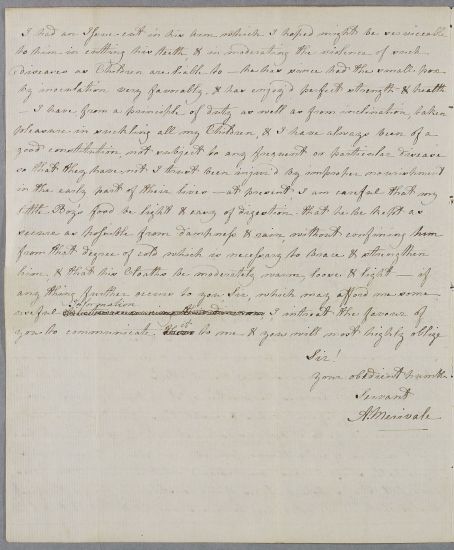 I had an Issue cut in his arm which I hoped might be serviceable
to him in cutting his teeth, & in moderating the violence of such
diseases as Children are liable to — he has since had the small pox
by inoculation very favorably, & has enjoy'd perfect strength & health
— I have from a principle of duty as well as from inclination, taken
pleasure in suckling all my Children, & I have always been of a
good constitution, not subject to any frequent or particular disease
so that they have not I trust been injur'd by improper nourishment
in the early part of their lives — at present I am careful that my
little Boy's food be light & easy of digestion, that he be kept as
secure as possible from dampness & rain, without confining him
from that degree of cold which is necessary to brace & strengthen
him, & that his Cloaths be moderately warm, loose & light — if
any thing further occurs to you Sir, which may afford me some
Information
useful I intreat the favour of
you to communicate it to me & you will most highly oblige
Sir!
Your obedient humble
Servant
A. Merivale